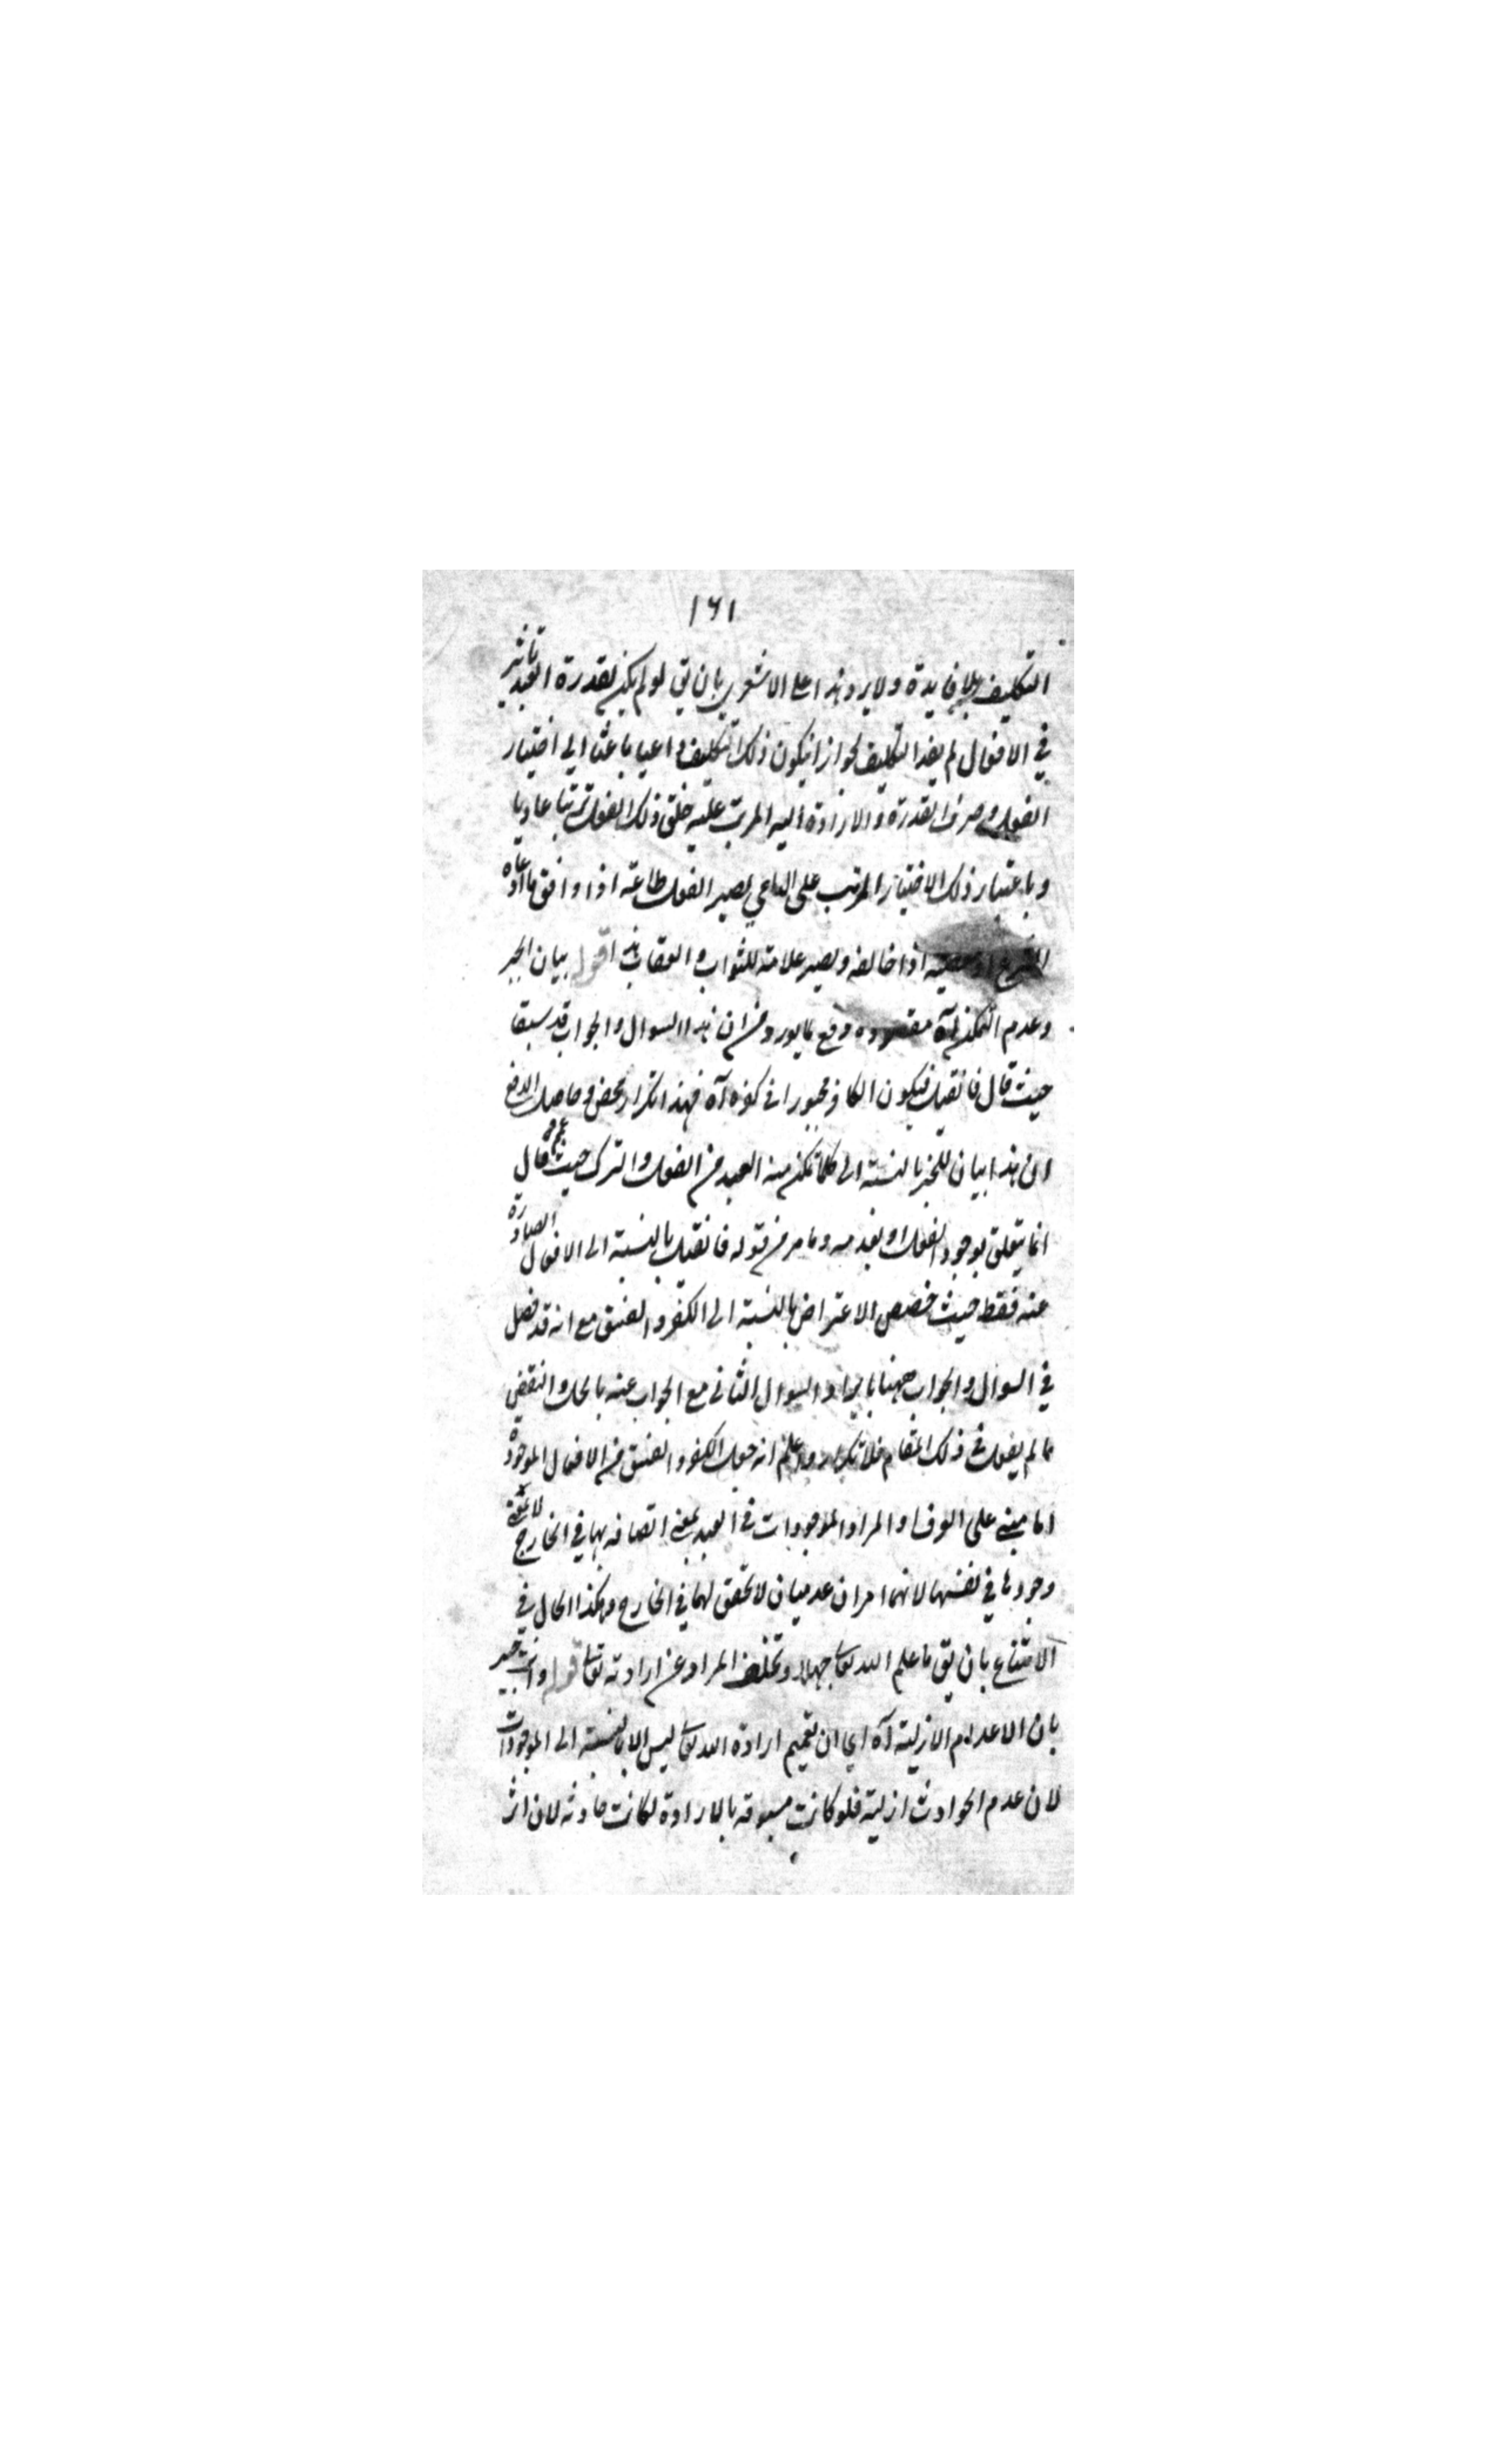 ١٦١
التكليف بلا فايدة ولا يرد هذا على الاشعري بان يق لو لم يكن لقدرة العبد تاثير
في الافعال لم يفد التكليف لجواز ان يكون ذلك التكليف داعيا باعثا الي اختيار
الفعل وصرف القدرة والارادة اليه المرتب عليه خلق ذلك الفعل ترتبا عاديا
وباعتبار ذلك الاختيار المرتب على الداعي يصير الفعل طاعة اذا وافق ما دعاه
الشرع او معصية اذا خالفه ويصير علامة للثواب والعقاب هذا قوله بيان الجبر
وعدم التمكن آه مقصوده دفع ما يورد من ان هذا السوال والجواب قد سبقا
حيث قال فان قيل فيكون الكافر مجبورا في كفره آه فهذا تكرار محض وحاصل الدفع
ان هذا بيان للجبر بالنسبة الى كلما تمكن منه العبد من الفعل والترك حيث عمم قال
انما يتعلق بوجود الفعل او بعدمه وما مر من قوله فان قيل بالنسبة الى الافعال الصادرة
عنه فقط حيث خصص الاعتراض بالنسبة الى الكفر والفسق مع انه قد فصل
في السوال والجواب ههنا بايراد السوال الثاني مع الجواب عنه بالحل والنقض
ما لم يفعل في ذلك المقام فلا تكرار واعلم انه جعل الكفر والفسق من الافعال الموجودة
اما مبني على العرف او المراد الموجودات في العبد بمعنى اتصافه بها في الخارج لا بمعنى
وجودها في نفسها لانهما امران عدميان لا تحقق لهما في الخارج وهكذا الحال في
الامتناع بان يق ما علم الله تعالى جهلا وتخلف المراد عن ارادته تعالى قوله وانت خبير
بان الاعدام الازلية آه اي ان تعميم ارادة الله تعالى ليس الا بالنسبة الى الموجودات
لان عدم الحوادث ازلية فلو كانت مسبوقة بالارادة لكانت حادثة لان اثر